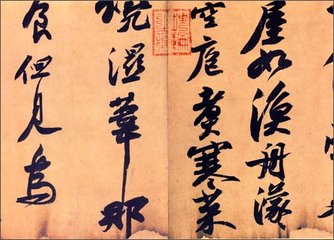 屋如漁舟濛
空庖煮寒菜
燒濕葦那
食但見烏